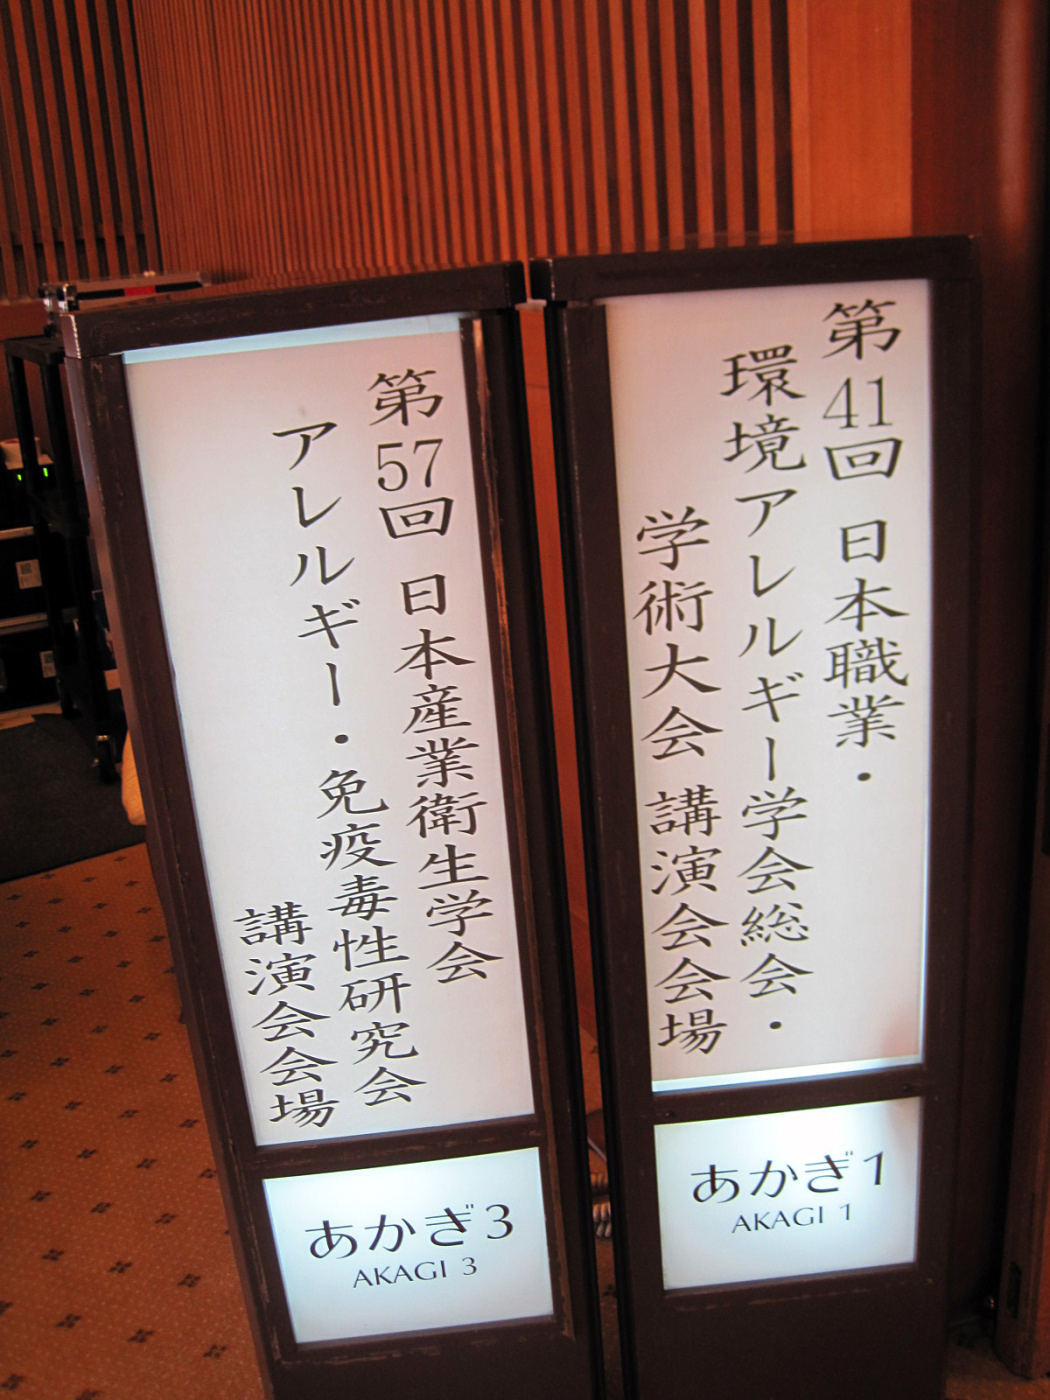 第41回 日本職業・
環境アレルギー学会総会・
学術大会 講演会会場
あかぎ1
AKAGI 1
第57回 日本産業衛生学会
アレルギー・免疫毒性研究会
講演会会場
あかぎ3
AKAGI 3